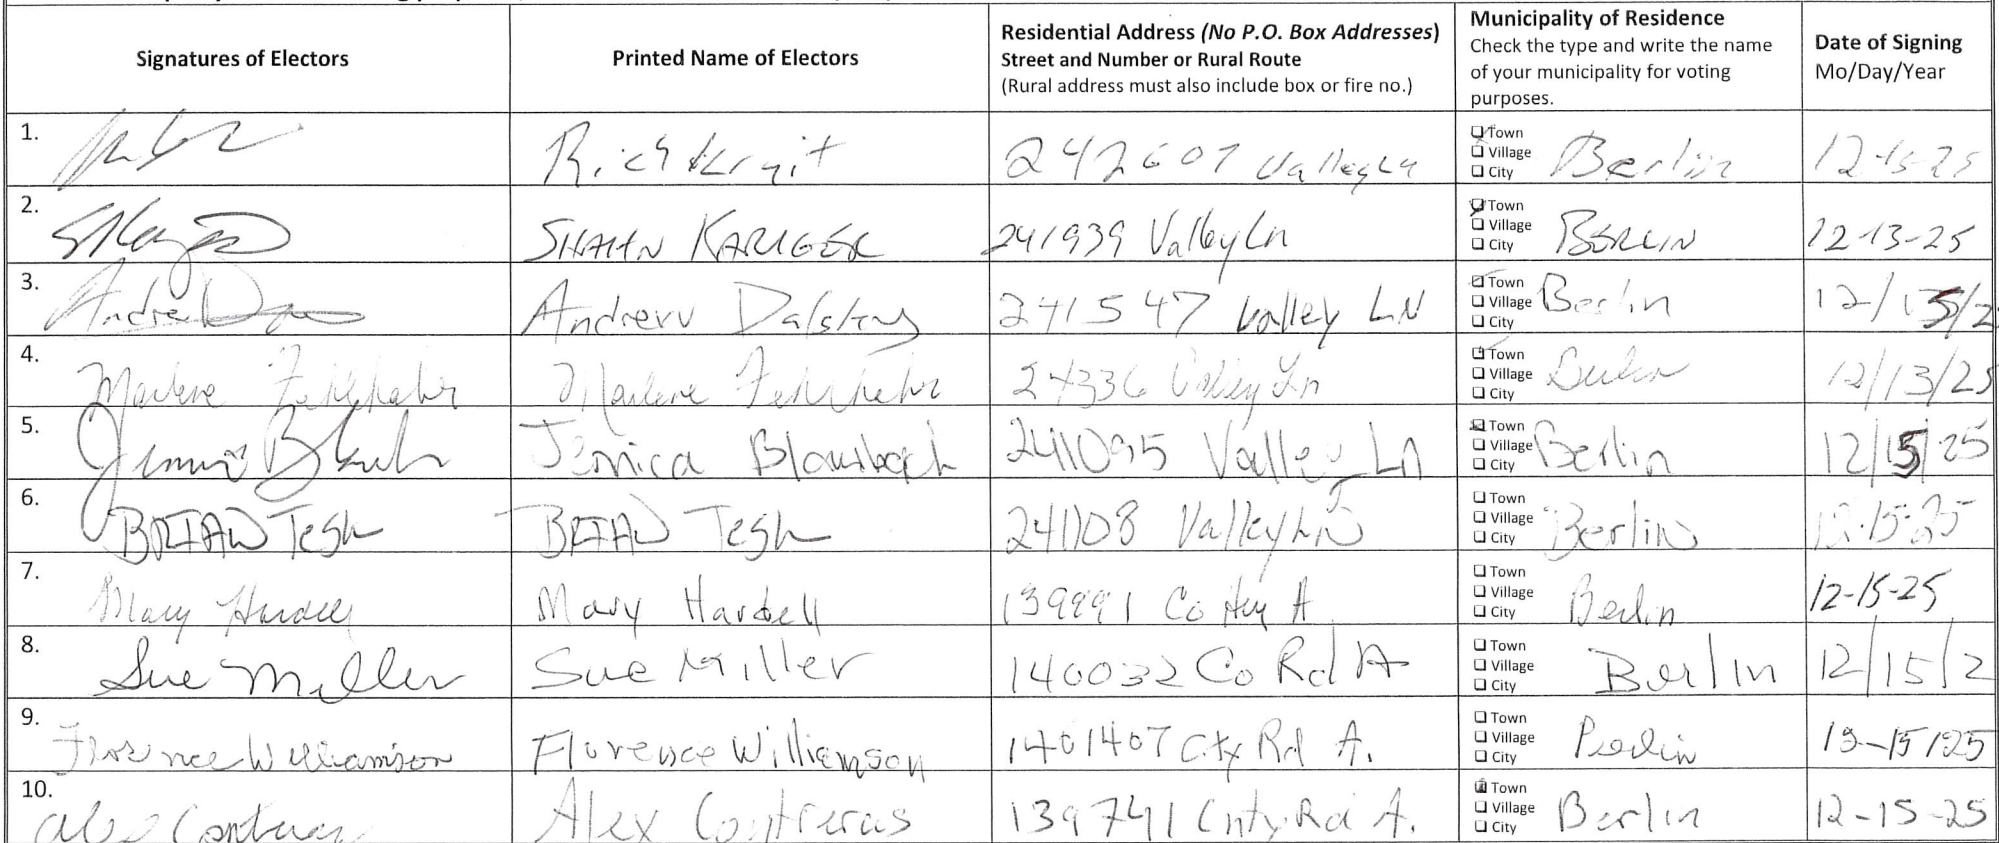 Signatures of Electors
Printed Name of Electors
Residential Address (No P.O. Box Addresses)
Street and Number or Rural Route
(Rural address must also include box or fire no.)
Municipality of Residence
Check the type and write the name
of your municipality for voting
purposes.
Date of Signing
Mo/Day/Year
1. Rich 242607 Valley Ln Town Village City Berlin 12-15-25
2. SHAHN KARIGER 241939 Valley Ln Town Village City BERLIN 12-13-25
3. Andrew Dalsky 241547 Valley LN Town Village City Berlin 12/15/2
4. Marlene Marlene 24336 Valley Ln Town Village City Berlin 12/13/25
5. Jessica 241095 Valley Ln Town Village City Berlin 12/15/25
6. BRIAN Tesh BRIAN Tesh 241108 Valley LN Town Village City Berlin 12-15-25
7. Mary Hardell Mary Hardell 139991 Co Hwy A Town Village City Berlin 12-15-25
8. Sue Miller Sue Miller 140032 Co Rd A Town Village City Berlin 12/15/2
9. Florence Williamson Florence Williamson 1401407 Cty Rd A. Town Village City Berlin 12-15/25
10. Alex Contreras Alex Contreras 139741 Cnty Rd A. Town Village City Berlin 12-15-25